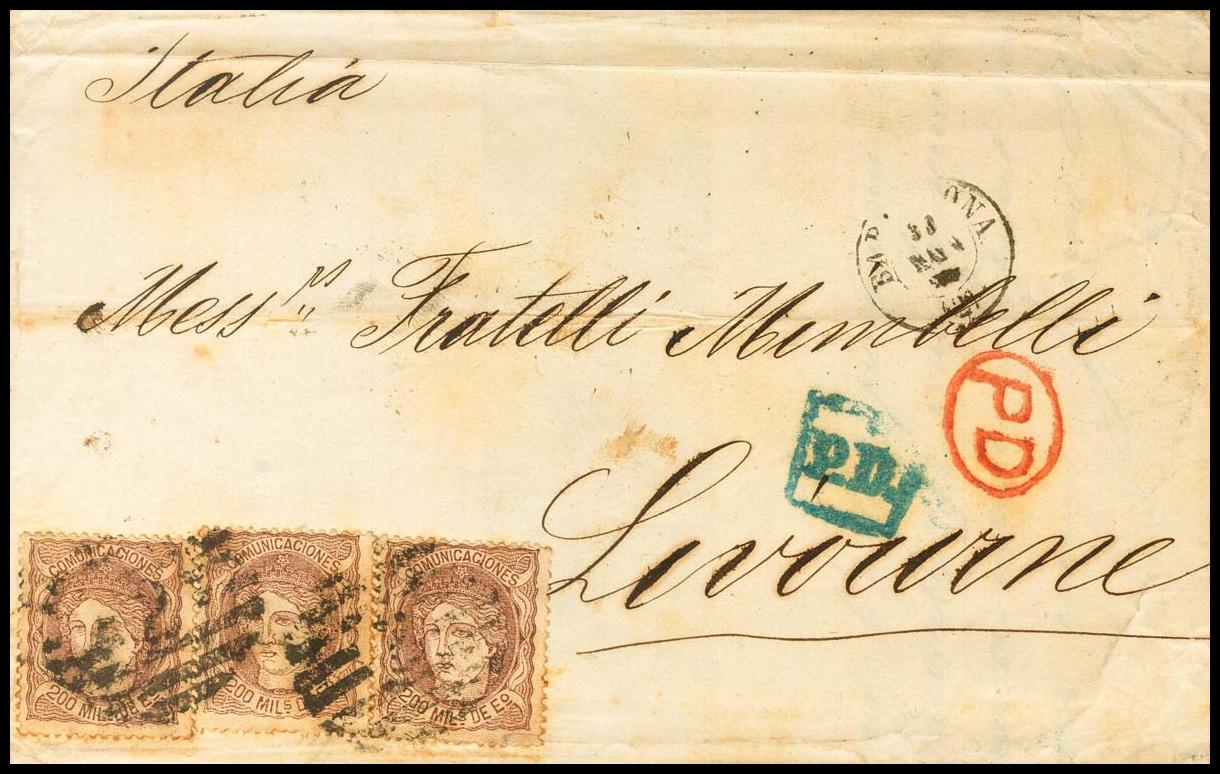 Italia
Mess.rs Fratelli Mimbelli
ONA
PD
P.D.
Livourne
COMUNICACIONES
200 MILS DE Eo
COMUNICACIONES
200 MILS DE
COMUNICACIONES
200 MILS DE Eo